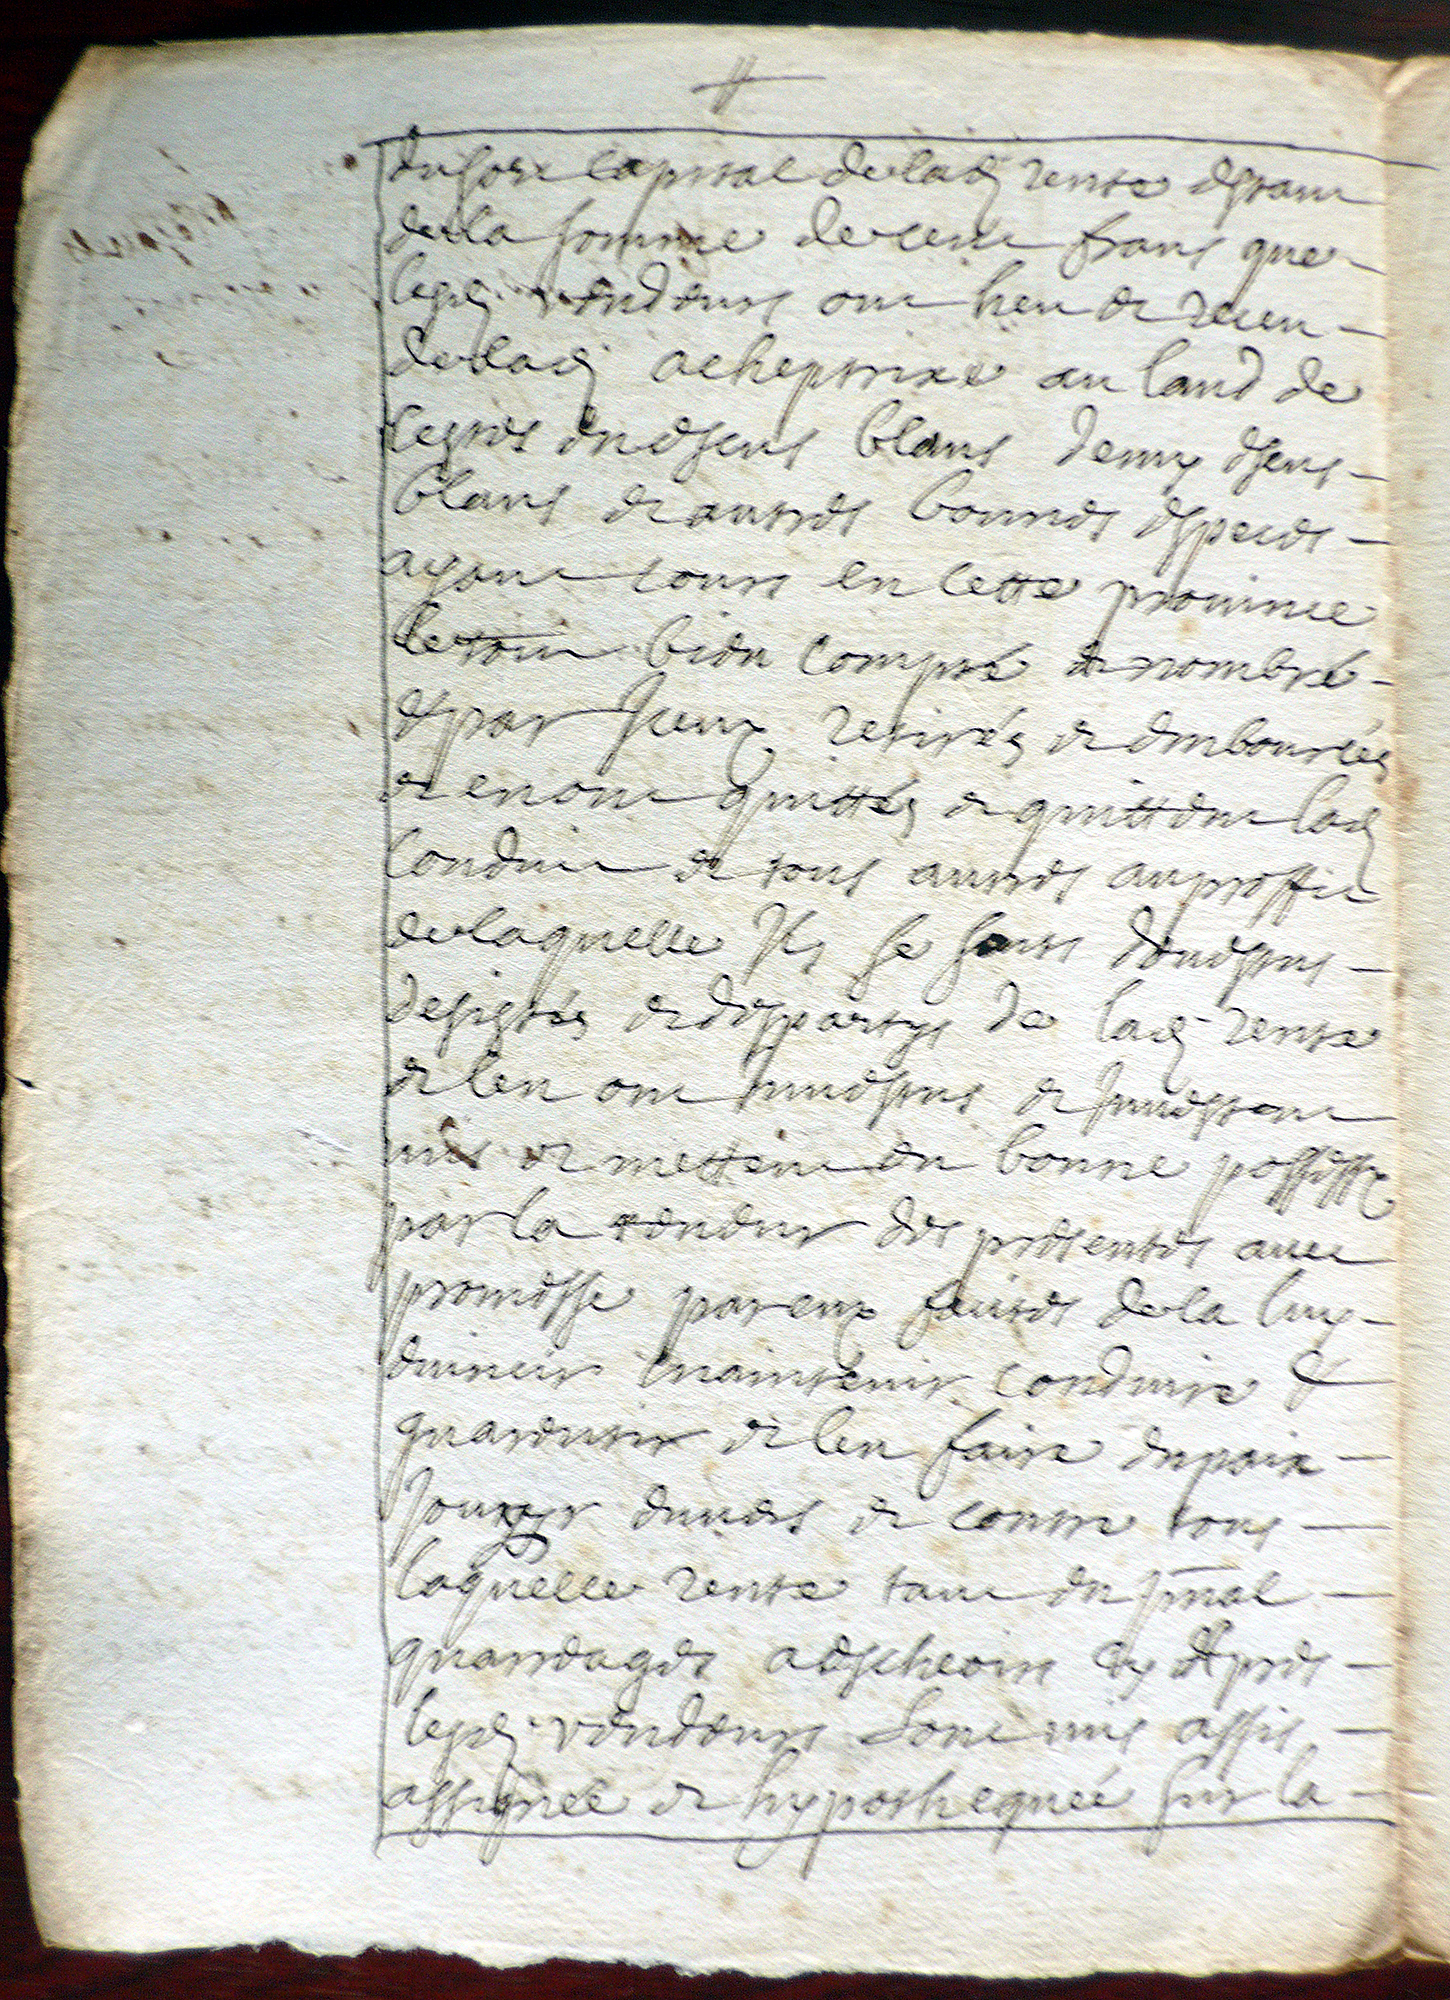 du sort capital de lad rente estant
de la somme de cent frans que
lesd vendeurs ont heu et receu
de lad achepterixe au land de
lestres en escus blans demy escus
blans et autres bonnes especes
ayant cours en cette province
le tout bien compté et nombré
et par iceux retirés et embourcés
et en ont quittés et quittent lad
conduit et tous autres au proffit
de laquelle Ils se sont devestus
desistés et despartys de lad rente
et len ont invdestus et invdestent
mis et mettent en bonne possession
par la teneur des presentes avec
promesse par eux faictes de la luy
maintenir conduire &
guarentir et len faire en paix
jouyr envers et contre tous
laquelle rente tant en pnal
quarrerages adescheoir cy apres
lesd vendeurs dont mis assis
assignée et hypothequée sur la